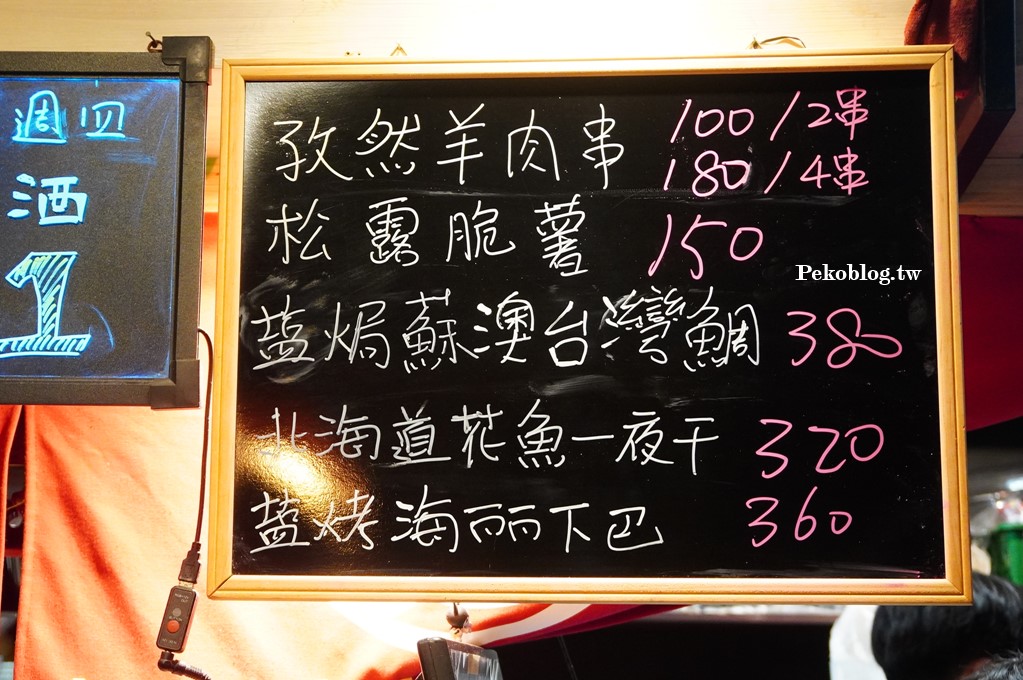 週四
酒
1
孜然羊肉串 100/2串
180/4串
松露脆薯 150
盐焗蘇澳台灣鯛 380
北海道花魚一夜干 320
盐烤海丽下巴 360
Pekoblog.tw